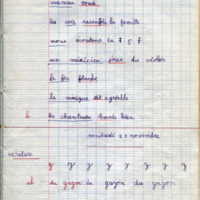 maman coud
le soir rassemble la famille
nous écoutons la T S F
un musicien joue du violon
le feu flambe
la musique est agréable
la chanteuse chante bien
vendredi 22 novembre
écriture
g g g g g g g g
de gazon de gazon du gazon